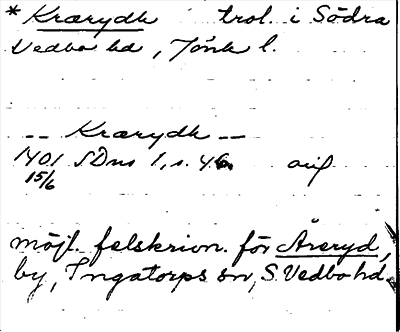 * Krærydh trol. i Södra
Vedbo hd, Jönk l.
-- Krærydh --
1401 SDns 1, s. 46 orig
15/6
möjl. felskrivn. för Åreryd,
by, Ingatorps sn, S. Vedbo hd.